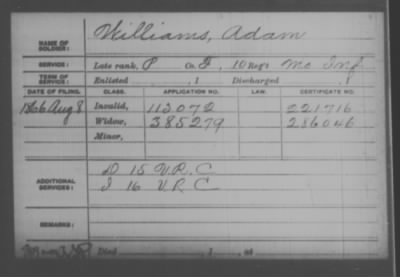 NAME OF SOLDIER: Williams, Adam
SERVICE: Late rank, P Co. I, 10 Reg't Mo Inf
TERM OF SERVICE: Enlisted , 1 Discharged , 1
DATE OF FILING. CLASS. APPLICATION NO. LAW. CERTIFICATE NO.
1866 Aug 8 Invalid, 113072 221716
Widow, 385279 286046
Minor,
ADDITIONAL SERVICES: D 15 V.R.C
I 16 V.R.C
REMARKS:
Died , 1 , at